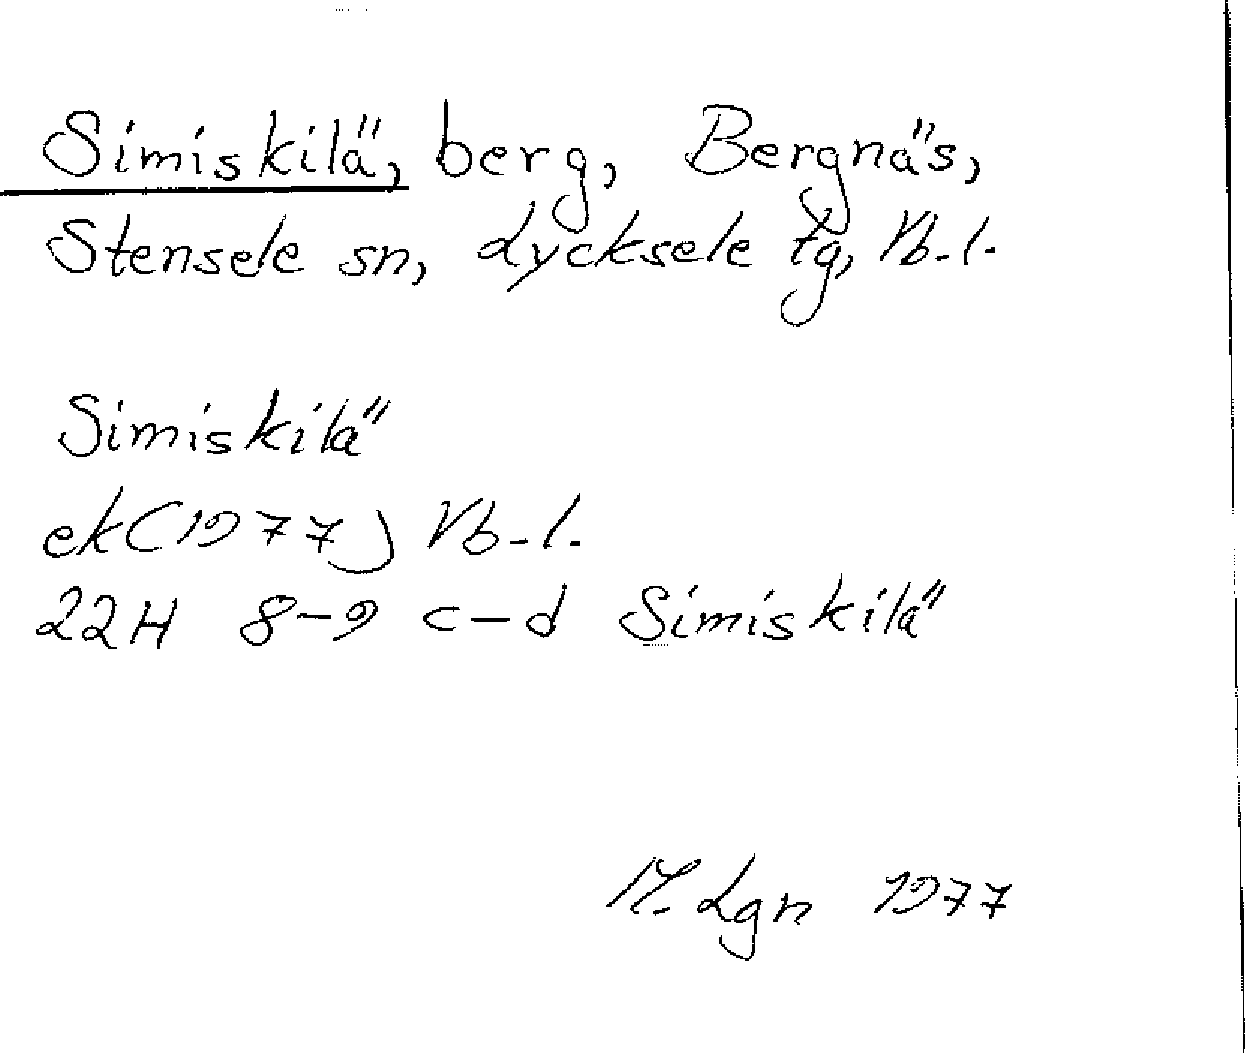 Simiskilä, berg, Bergnäs,
Stensele sn, Lycksele tg, Vb.l.
Simiskilä
ek (1977) Vb-l.
22H 8-9 c-d Simiskilä
M. Lgn 1977